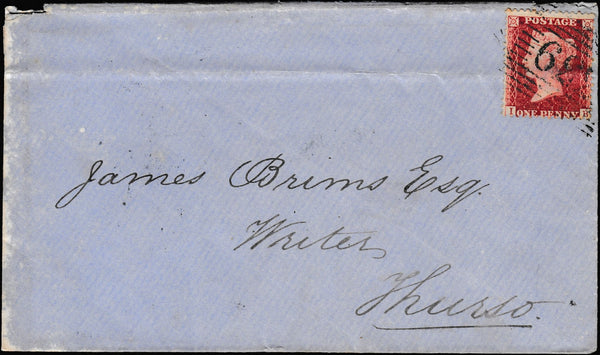 POSTAGE
I ONE PENNY
James Brims Esq.
Writer
Thurso.